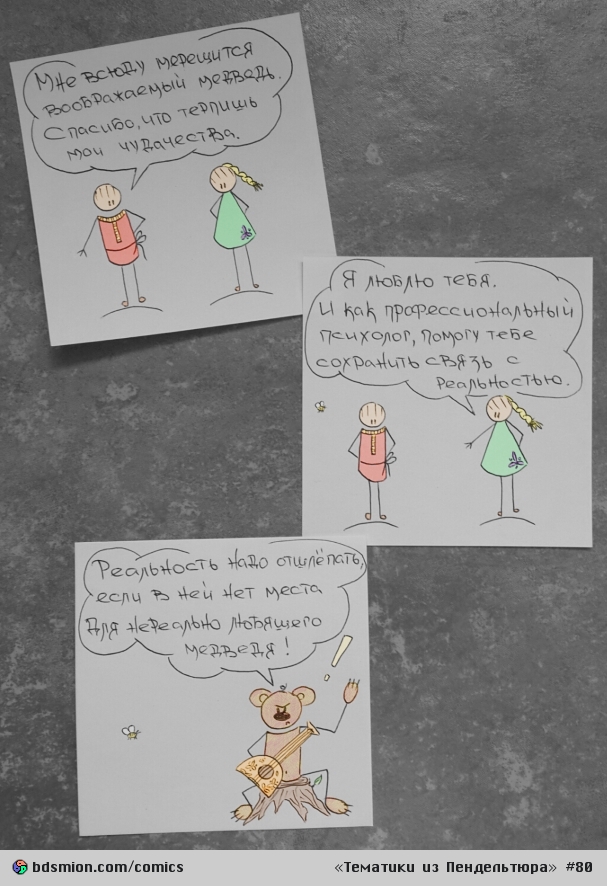 Мне всюду мерещится
воображаемый медведь.
Спасибо, что терпишь
мои чудачества.
Я люблю тебя.
И как профессиональный
психолог, помогу тебе
сохранить связь с
реальностью.
Реальность надо отшлёпать,
если в ней нет места
для нереально любящего
медведя!
!
bdsmion.com/comics
«Тематики из Пендельтюра» #80